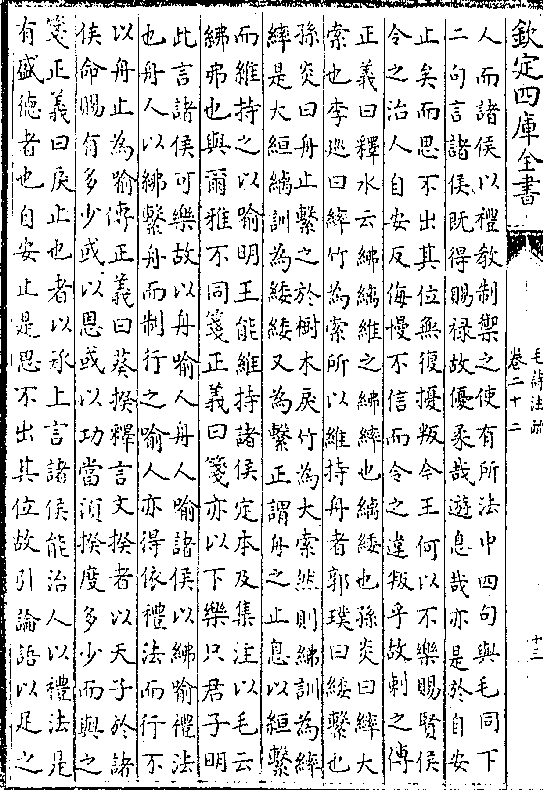 欽定四庫全書
毛詩注疏
卷二十二
十三
人而諸侯以禮教制禦之使有所法中四句與毛同下
二句言諸侯既得賜祿故優柔哉遊息哉亦是於自安
止矣而思不出其位無復擾叛今王何以不樂賜賢侯
令之治人自安反侮慢不信而令之違叛乎故刺之傳
正義曰釋水云紼縭維之紼繂也縭緌也孫炎曰繂大
索也李廵曰繂竹為索所以維持舟者郭璞曰緌繫也
孫炎曰舟止繫之於樹木戾竹為大索然則紼訓為繂
繂是大絙縭訓為緌緌又為繫正謂舟之止息以絙繫
而維持之以喻明王能維持諸侯定本及集注以毛云
紼弗也與爾雅不同箋正義曰箋亦以下樂只君子明
此言諸侯可樂故以舟喻人舟人喻諸侯以紼喻禮法
也舟人以紼繫舟而制行之喻人亦得依禮法而行不
以舟止為喻傳正義曰葵揆釋言文揆者以天子於諸
侯命賜有多少或以恩或以功當須揆度多少而與之
箋正義曰戾止也者以承上言諸侯能治人以禮法是
有盛德者也自安止是思不出其位故引論語以足之